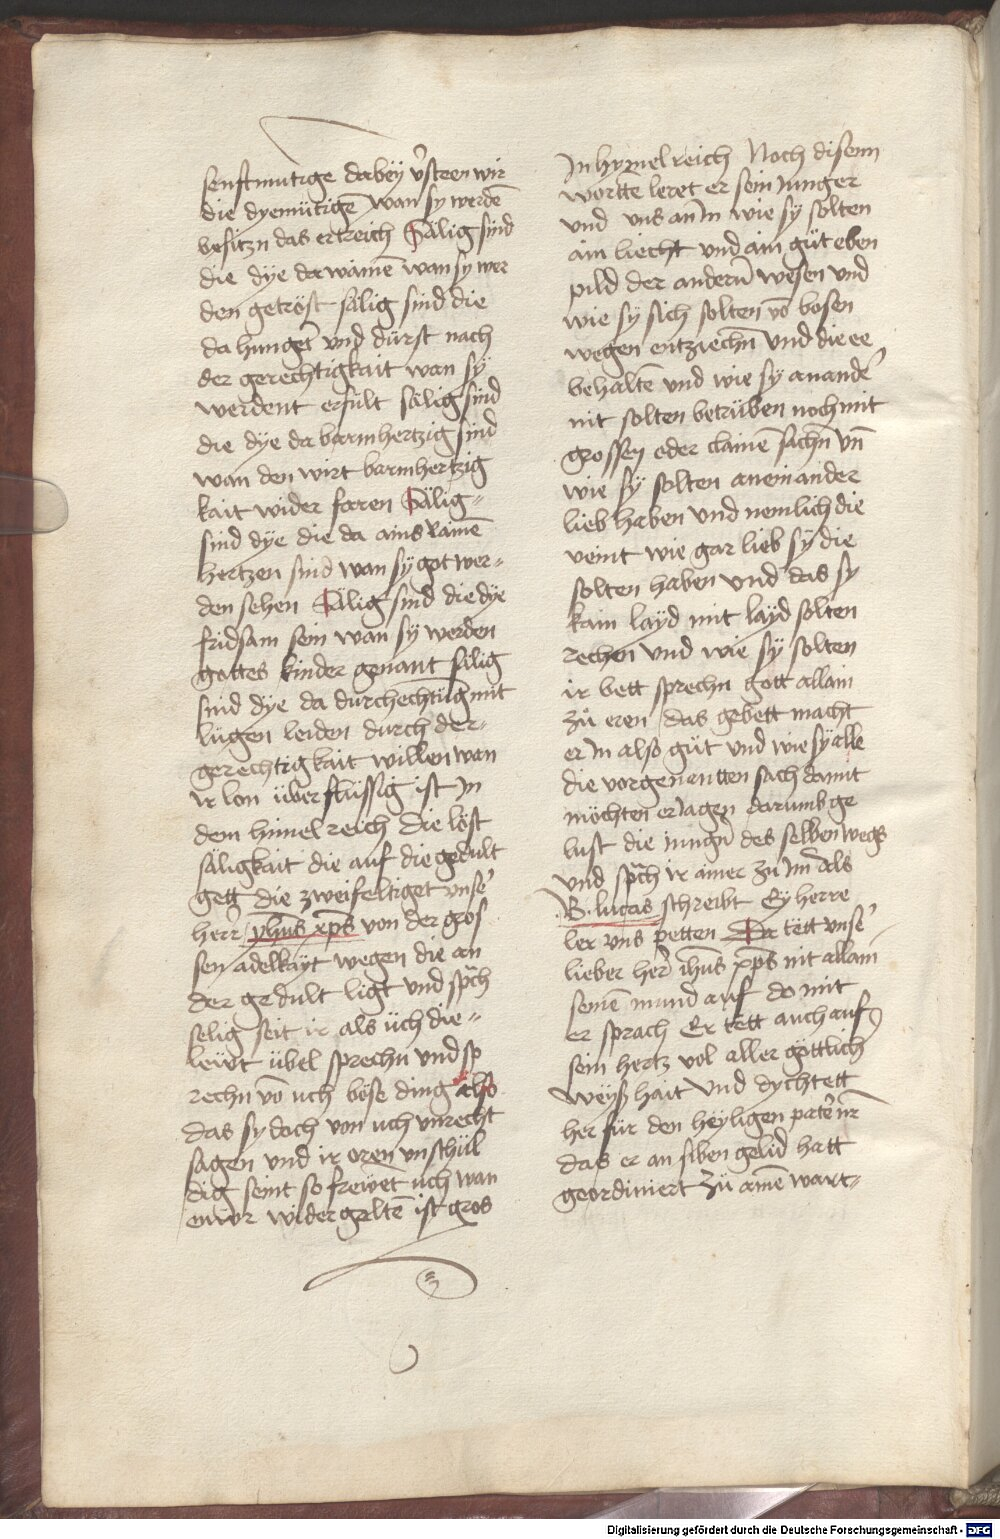 senftmutige dabeÿ v̄steen wir
die dyemütigē wan sy werdē
besitzn das ertreich Sälig sind
die dÿe da wainē wan sy wer
den getröst sälig sind die
da hungēt vnd dürst nach
der gerechtigkait wan sy
werdent erfült sälig sind
die dÿe da barmhertzig sind
wan den wirt barmhertzig
kait wider faren Sälig=
sind dÿe die da ains rainē
hertzen sind wan sy got wer=
den sehen Sälig sind die dÿe
fridsam sein wan sÿ werden
gottes kinder genant sälig
sind dÿe da durchechtūg mit
lügen leiden durch der=
gerechtigkait willen wan
ir lon überflüssig ist Jn
dem himelreich die löst
säligkait die auf die gedult
gett die zweifeltiget vnsē
herr yhūs xp̄s von der gros
sen adelkäyt wegen die an
der gedult ligt vnd sp̄ch
selig seit ir als üch die=
lewt übel sprechn vnd sp
rechn vō uch böse ding also
das sy doch von uch vnrecht
sagen vnd ir oren vnschül
dig seint so frewet uch wan
ewr widergeltē ist gros
Jn hymelreich Noch disenn
wortte leret er sein Junger
vnd vns an Jn wie sÿ solten
ain liecht vnd ain güt eben
pild der anderū wesen vnd
wie sy sich solten vō bosen
wegen entziechn vnd die ee
behaltē vnd wie sy anandē
nit solten betrüben noch mit
grossen oder clainē sachn vn̄
wie sÿ solten aneinander
lieb haben vnd nemlich die
veint wie gar lieb sÿ die
solten haben vnd das sy
kain layd mit layd solten
rechen vnd wie sÿ solten
ir bett sprechn gott allain
zů eren das gebett macht
er Jn also güt vnd wie sÿ alle
die vorgenantten sach damit
möchten erJagen darumb ge
lust die Jungn̄ des selben wegs
vnd sp̄ch ir ainer zu Jm Als
B. lucas schreibt Ey herre
ler vns petten Da tëtt vnsē
lieber her̄ ih̄us xp̄s nit allain
seinē mund auf do mit
er sprach Er tëtt auch auf
sein hertz vol aller göttlich
weÿßhait vnd dychtett
her für den heyligen pater nr̄
das er an siben gelid hatt
geordiniert Zü amē wart=
Digitalisierung gefördert durch die Deutsche Forschungsgemeinschaft - DFG